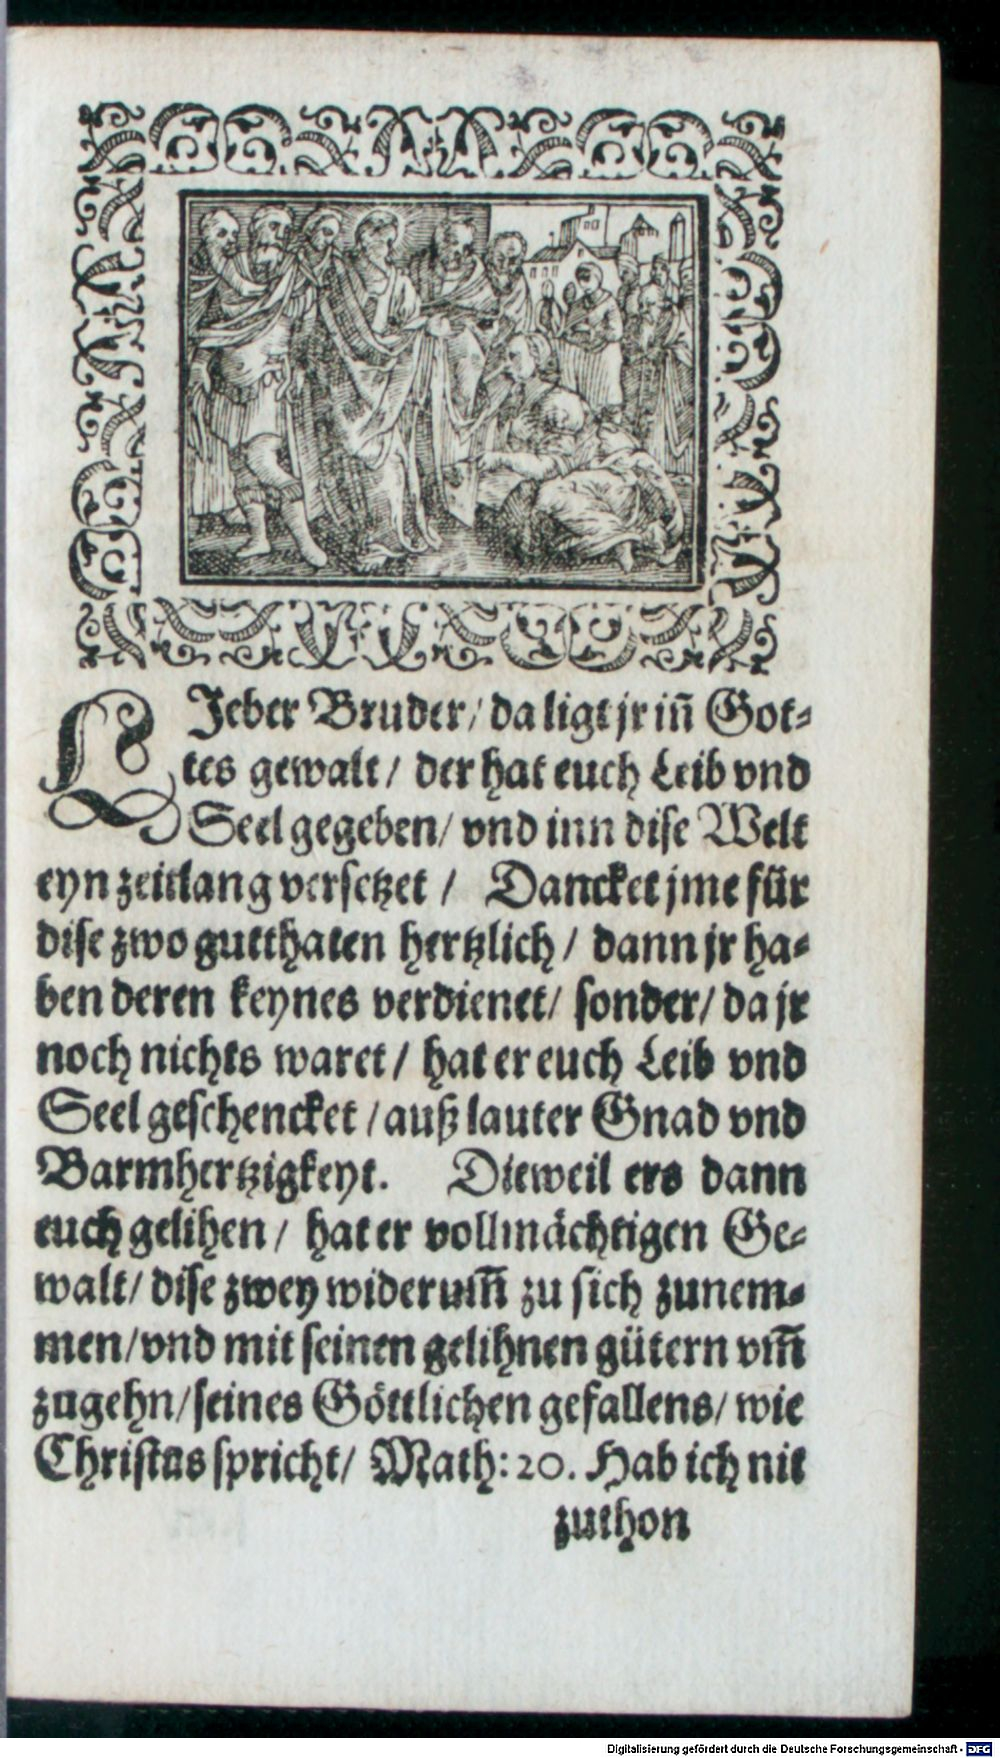 LJeber Bruder/ da ligt jr iñ Got⸗
tes gewalt/ der hat euch Leib vnd
Seel gegeben/ vnd inn dise Welt
eyn zeitlang versetzet / Dancket jme für
dise zwo gutthaten hertzlich/ dann jr ha⸗
ben deren keynes verdienet/ sonder/ da jr
noch nichts waret/ hat er euch Leib vnd
Seel geschencket /auß lauter Gnad vnd
Barmhertzigkeyt. Dieweil ers dann
euch gelihen/ hat er vollmächtigen Ge⸗
walt/ dise zwey widerum̃ zu sich zunem⸗
men/vnd mit seinen gelihnen gütern vm̃
zugehn/seines Göttlichen gefallens/ wie
Christus spricht/ Math: 20. Hab ich nit
zuthon
Digitalisierung gefördert durch die Deutsche Forschungsgemeinschaft - DFG